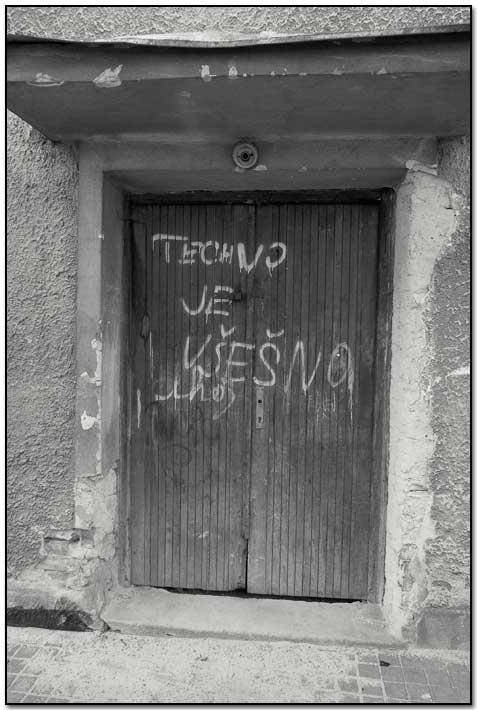 TECHNO
JE
VŠEŠNO